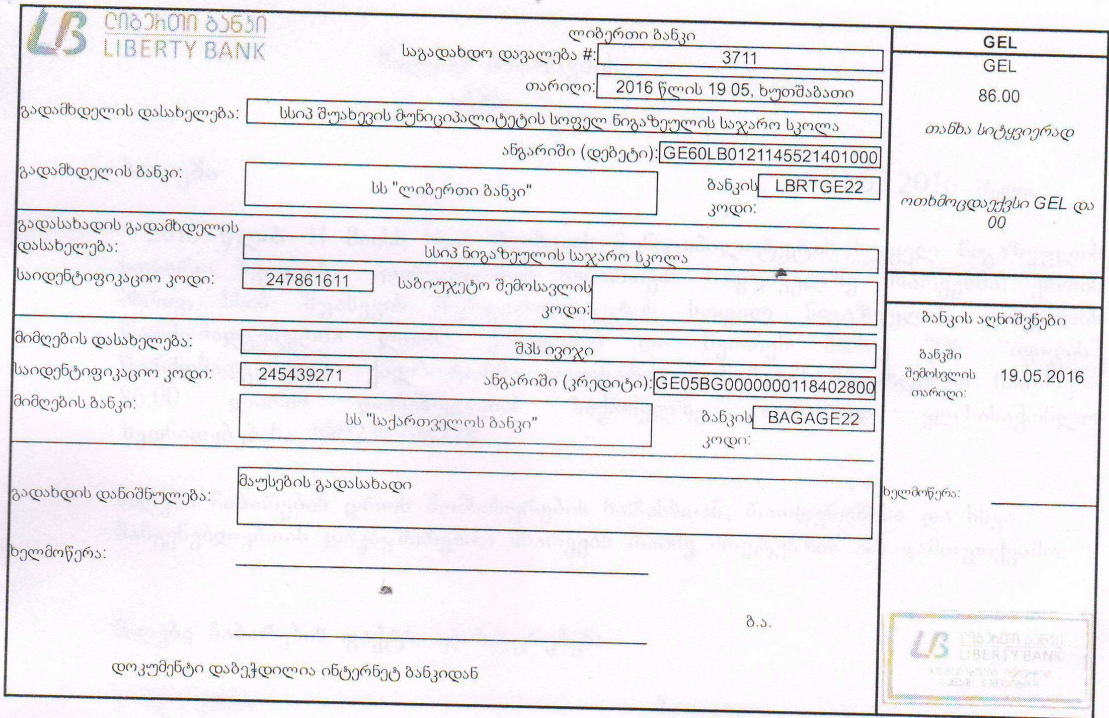 ლიბერთი ბანკი
LIBERTY BANK
ლიბერთი ბანკი
საგადახდო დავალება #: 3711
თარიღი: 2016 წლის 19 05, ხუთშაბათი
გადამხდელის დასახელება: სსიპ შუახევის მუნიციპალიტეტის სოფელ ნიგაზეულის საჯარო სკოლა
ანგარიში (დებეტი): GE60LB0121145521401000
გადამხდელის ბანკი: სს "ლიბერთი ბანკი" ბანკის კოდი: LBRTGE22
გადასახადის გადამხდელის
დასახელება: სსიპ ნიგაზეულის საჯარო სკოლა
საიდენტიფიკაციო კოდი: 247861611 საბიუჯეტო შემოსავლის
კოდი:
მიმღების დასახელება: შპს ივოჯი
საიდენტიფიკაციო კოდი: 245439271 ანგარიში (კრედიტი): GE05BG0000000118402800
მიმღების ბანკი: სს "საქართველოს ბანკი" ბანკის კოდი: BAGAGE22
გადახდის დანიშნულება: მაუსების გადასახადი
ხელმოწერა:
ბ.ა.
დოკუმენტი დაბეჭდილია ინტერნეტ ბანკიდან
GEL
GEL
86.00
თანხა სიტყვიერად
ოთხმოცდაექვსი GEL და
00
ბანკის აღნიშვნები
ბანკში
შემოსვლის 19.05.2016
თარიღი:
ხელმოწერა:
ლიბერთი ბანკი
LIBERTY BANK